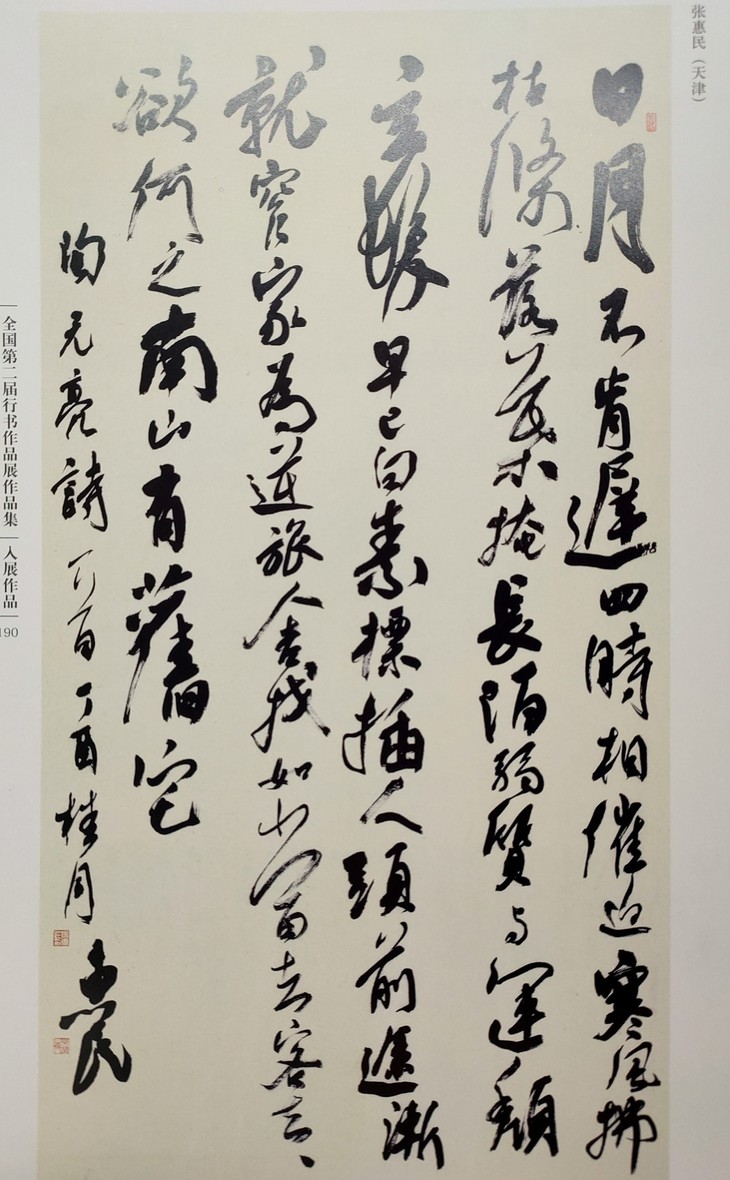 张惠民（天津）
日月不肯遲四時相催迫寒風拂
枯條落葉掩長陌弱質与運頹
玄鬢早已白素標插人頭前途漸
就窄家為逆旅舍我如當去客去、
欲何之南山有舊宅
陶元亮詩一首丁酉桂月惠民
全国第二届行书作品展作品集 | 入展作品 | 190